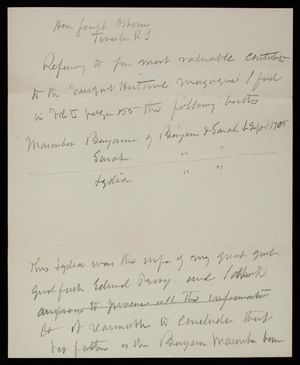 Hon Joseph Osborn
Tiverton R.I.
Refering to your most valuable contribution
to the Newport Historical magazine I find
in Vol 6 page 155 the following births
Macomber Benjamin of Benjamin & Sarah b Sept 1705
Sarah " "
Lydia " "
This Lydia was the wife of my great great
Grandfather Edward Perry. and I
anxious to procure all the information
it reasonable to conclude that
her father is the Benjamin Macomber born